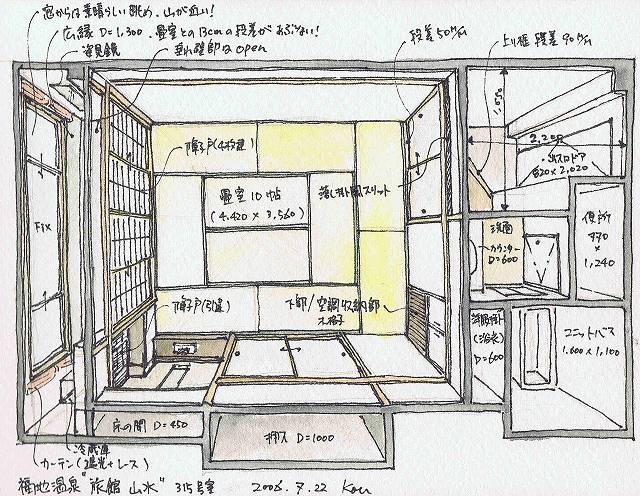 窓からは素晴らしい眺め、山が近い!
広縁 D=1,300、畳室との13cmの段差があぶない!
姿見鏡
垂れ壁部はopen
段差50m/m
上り框 段差90m/m
障子戸(4枚建)
畳室10帖
(4,420 × 3,560)
落し掛風スリット
2,200
820 × 2,020
Fix
洗面
カウンター
D=600
便所
970
×
1,240
障子戸(引建)
下部/空調収納部
木格子
(浴衣)
D=600
ユニットバス
1,600 × 1,100
床の間 D=450
押入 D=1000
冷蔵庫
カーテン(遮光+レース)
福地温泉"旅館 山水" 315号室 2006.7.22 Kou